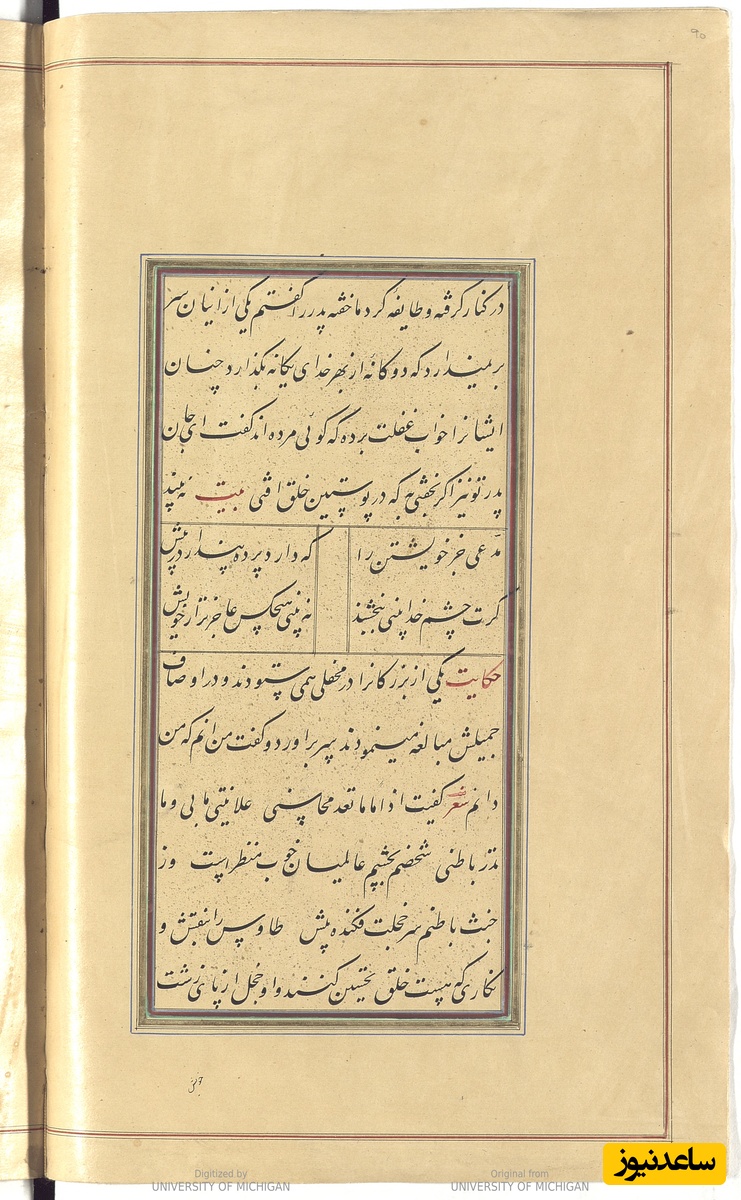 ۹۵
در کنار گرفته و طایفه گرد ما خفته پدر را گفتم یکی از اینان سر
بر نمیدارد که دوگانه از بهر خدای یگانه بگذارد چنان
ایشانرا خواب غفلت برده که گوئی مرده اند گفت ای جان
پدر تو نیز اگر بخفتی به که در پوستین خلق افتی بیت نه بیند
مدعی جز خویشتن را که دارد پرده پندار در پیش
گرت چشم خدا بینی ببخشند نه بینی هیچکس عاجزتر از خویش
حکایت یکی از بزرگانرا در محفلی همی ستودند و در اوصاف
جمیلش مبالغه مینمودند سر براورد و گفت من انم که من
دانم شعر کفیت اذا اما تعد محاسنی علانیتی ما بی وما
تدر باطنی شخصم بچشم عالمیان خوب منظر است وز
خبث باطنم سر خجلت فکنده پیش طاوس را بنقش و
نگاری که هست خلق تحسین کنند و او خجل از پای زشت
ساعدنیوز
Digitized by
UNIVERSITY OF MICHIGAN
Original from
UNIVERSITY OF MICHIGAN